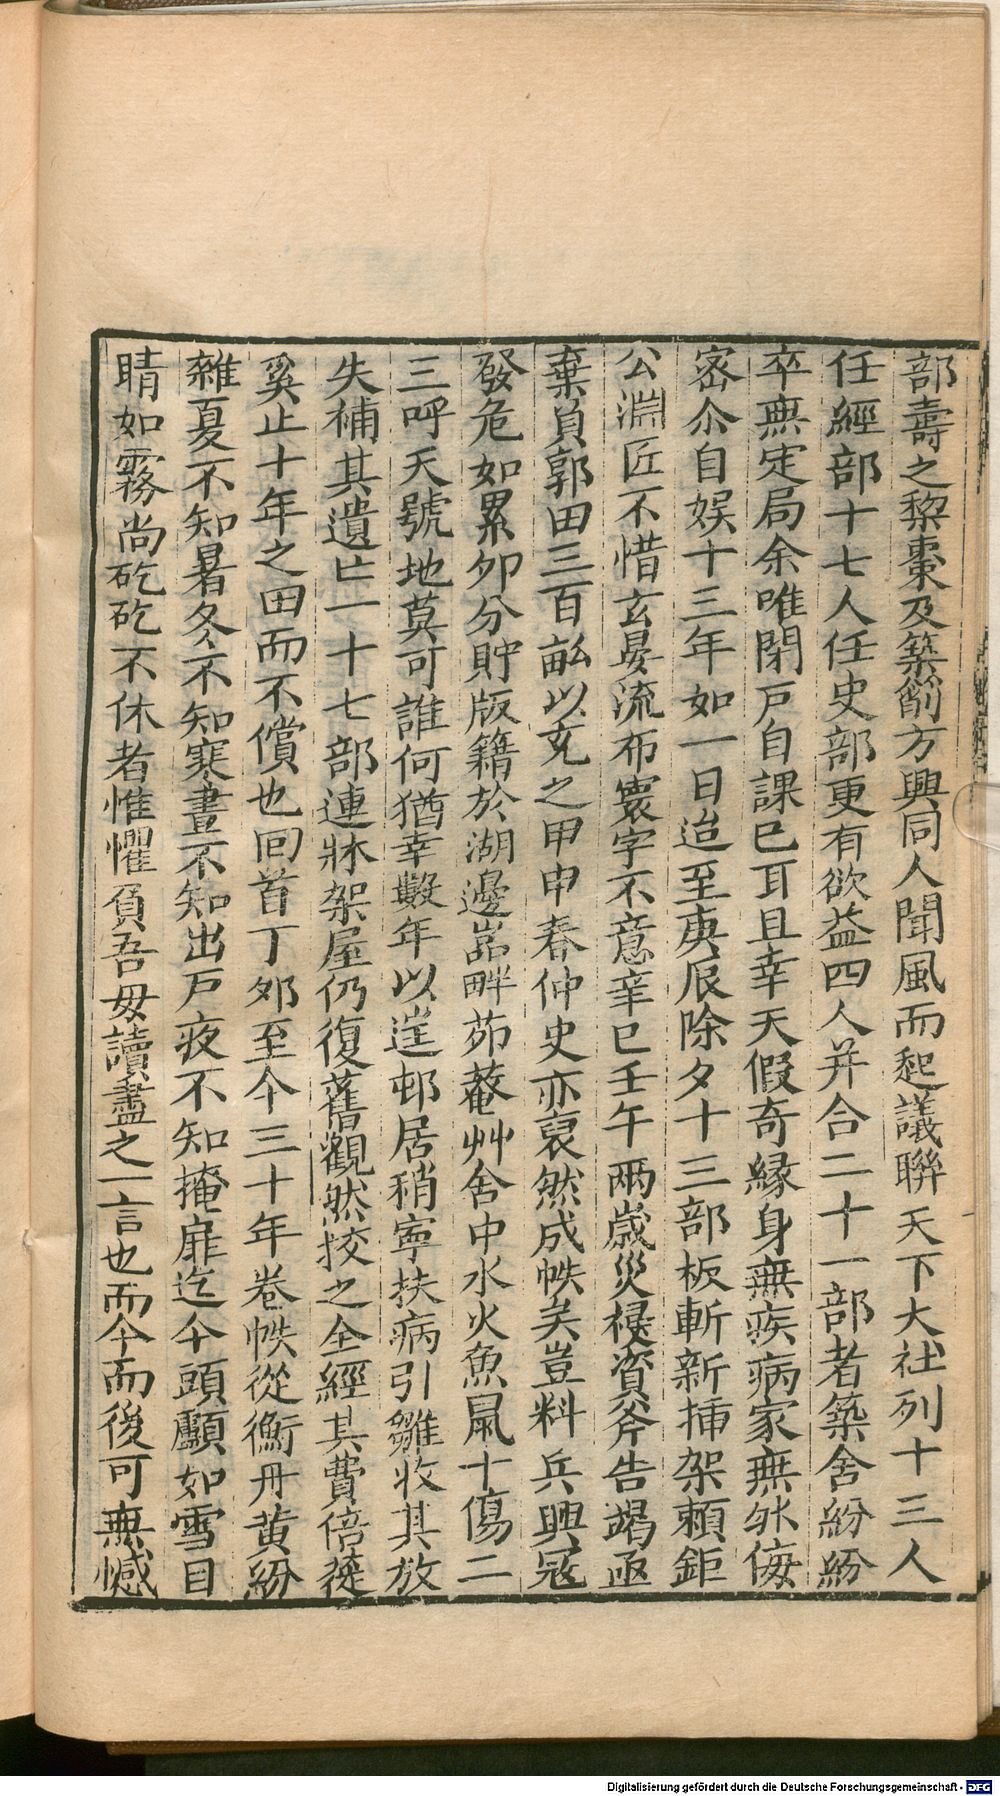 部壽之棃棗及築劄方興同人聞風而起議聯天下大社列十三人
任經部十七人任史部更有欲益四人并合二十一部者築舍紛紛
卒無定局余唯閉戸自課已耳且幸天假奇緣身無疾病家無外侮
密尒自娱十三年如一日迨至庚辰除夕十三部板斬新揷架賴鉅
公淵匠不惜玄晏流布寰宇不意辛巳壬午兩歲災祲資斧告竭亟
棄負郭田三百畝以充之甲申春仲史亦裒然成帙矣豈料兵興冦
發危如累卵分貯版籍於湖邊嵓畔茆菴艸舍中水火魚鼠十傷二
三呼天號地莫可誰何猶幸數年以逞邨居稍寧扶病引雛收其放
失補其遺亡一十七部連牀架屋仍復舊觀然挍之全經其費倍蓰
奚止十年之田而不償也囘首丁夘至今三十年卷帙從衡丹黄紛
雜夏不知暑冬不知寒晝不知出戸夜不知掩扉迄今頭顱如雪目
睛如霧尚矻矻不休者惟懼負吾毋讀盡之一言也而今而後可無憾
Digitalisierung gefördert durch die Deutsche Forschungsgemeinschaft - DFG